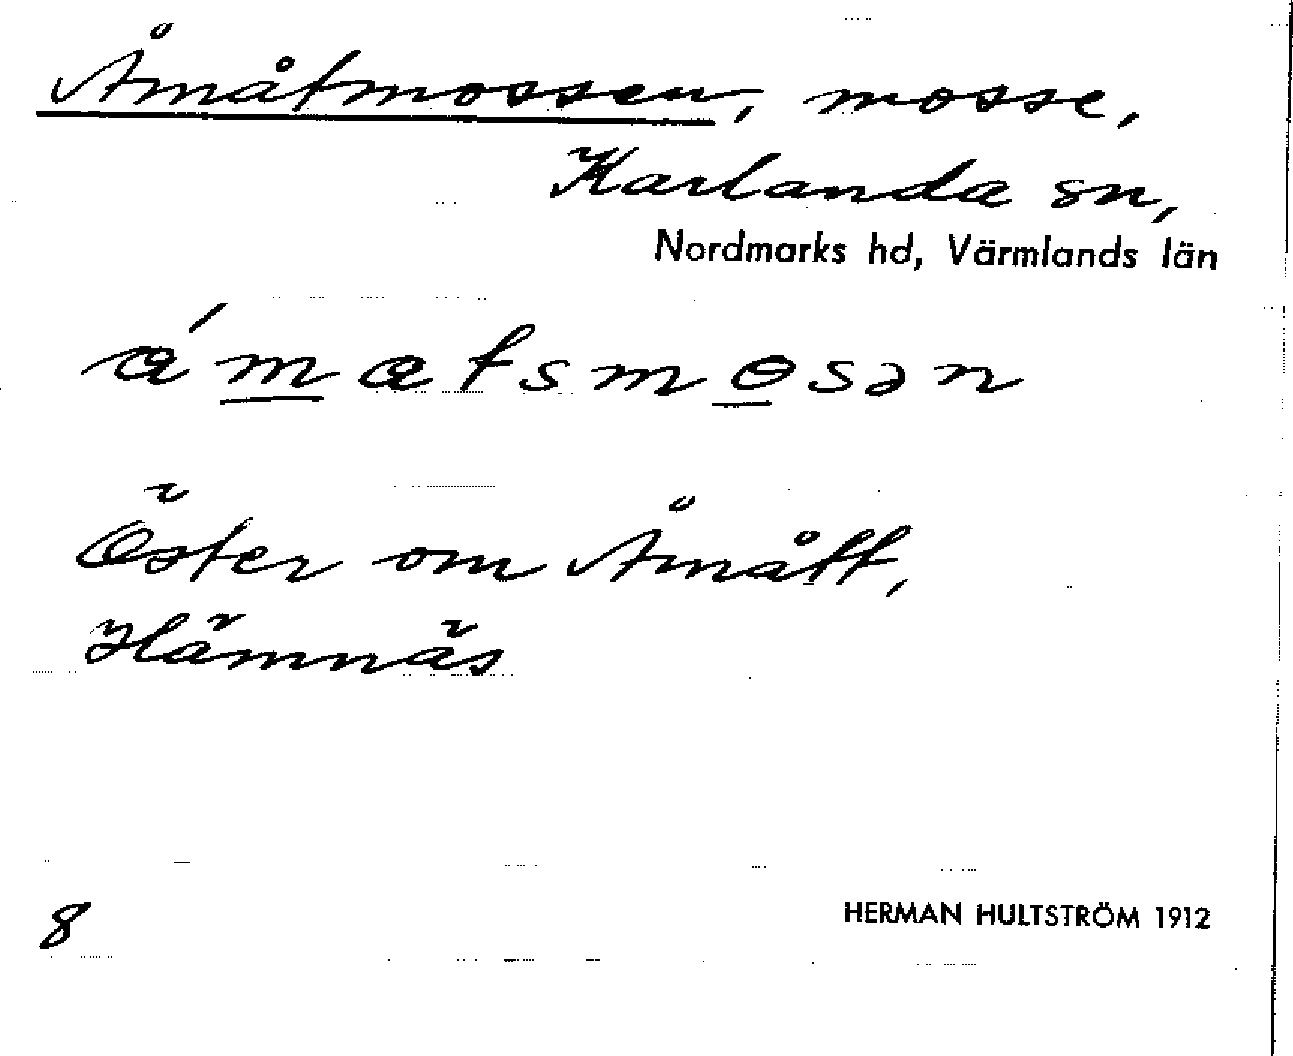 Åmåtmossen, mosse,
Karlanda sn,
Nordmarks hd, Värmlands län
Öster om Åmått,
Hämnäs
8
HERMAN HULTSTRÖM 1912